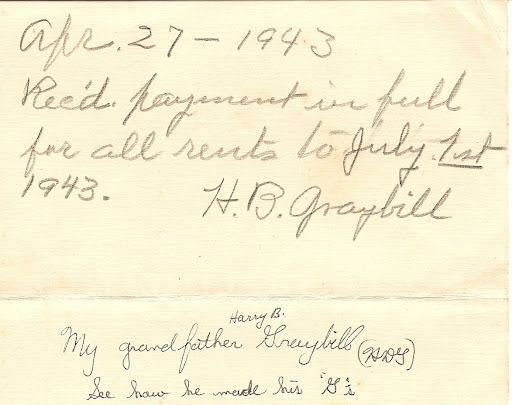 Apr. 27 - 1943
Rec'd. payment in full
for all rents to July 1st
1943. H. B. Graybill
Harry B.
My grandfather Graybill (HDG)
See how he made his "G"s